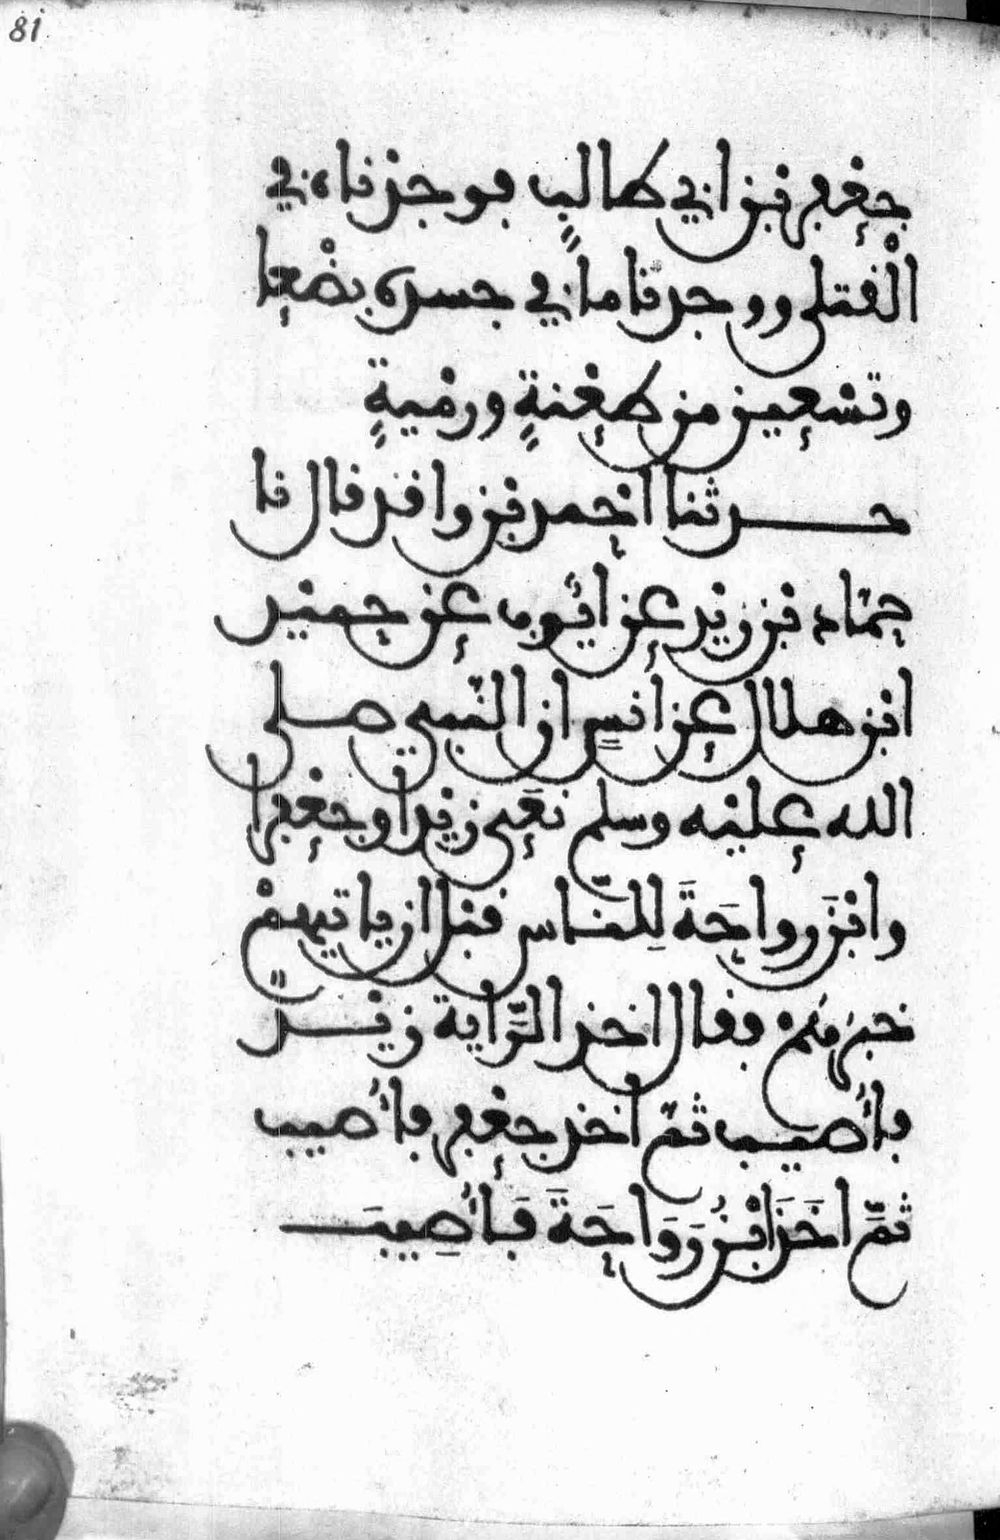 81
جعفر بن ابي طالبٍ فوجدناه في
الْقتلى ووجدنا ما في جسده بضْعا
وتسْعين من طعْنةٍ ورمْيةٍ
حدثنا احْمد بن واقد قال نا
حمّاد بن زيْد عن ايّوب عن حميْد
ابْن هلال عن انسٍ ان النّبي صلى
الله عليْه وسلم نعَى زيْدا وجعْفرا
وابْنَ رواحَةَ لِلنّاس قبْل ان ياتيهمْ
خبرُهمْ فقال اخذ الرَّاية زيْدٌ
فأُصيب ثمّ أخذ جعْفر فأُصيب
ثمَّ اخَذَ ابْنُ رَوَاحَةَ فَأُصِيبَ